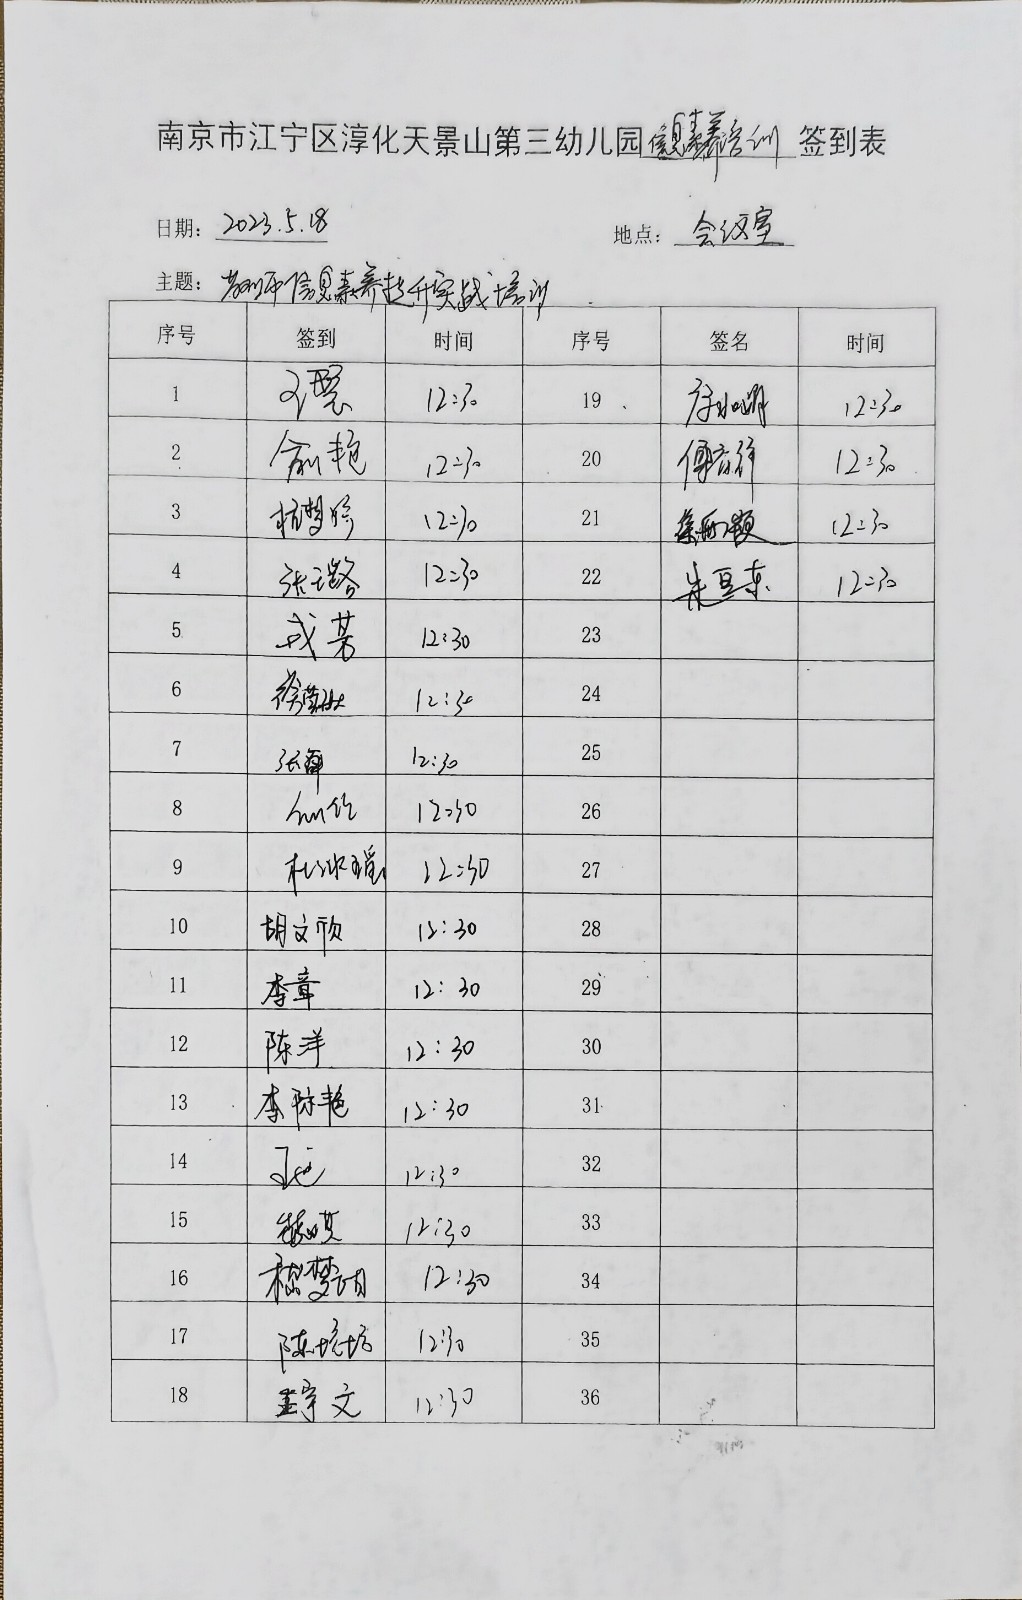 南京市江宁区淳化天景山第三幼儿园信息素养培训 签到表
日期：2023.5.18 地点：会议室
主题：教师信息素养提升实战培训
序号 签到 时间 序号 签名 时间
1 12:30 19 12:30
2 俞艳 12:30 20 12:30
3 杭梦婷 12:30 21 12:30
4 张璐 12:30 22 朱亘东 12:30
5 戎芳 12:30 23
6 12:30 24
7 12:30 25
8 12:30 26
9 12:30 27
10 胡文欣 12:30 28
11 李章 12:30 29
12 陈洋 12:30 30
13 李陈艳 12:30 31
14 12:30 32
15 12:30 33
16 12:30 34
17 陈培培 12:30 35
18 12:30 36